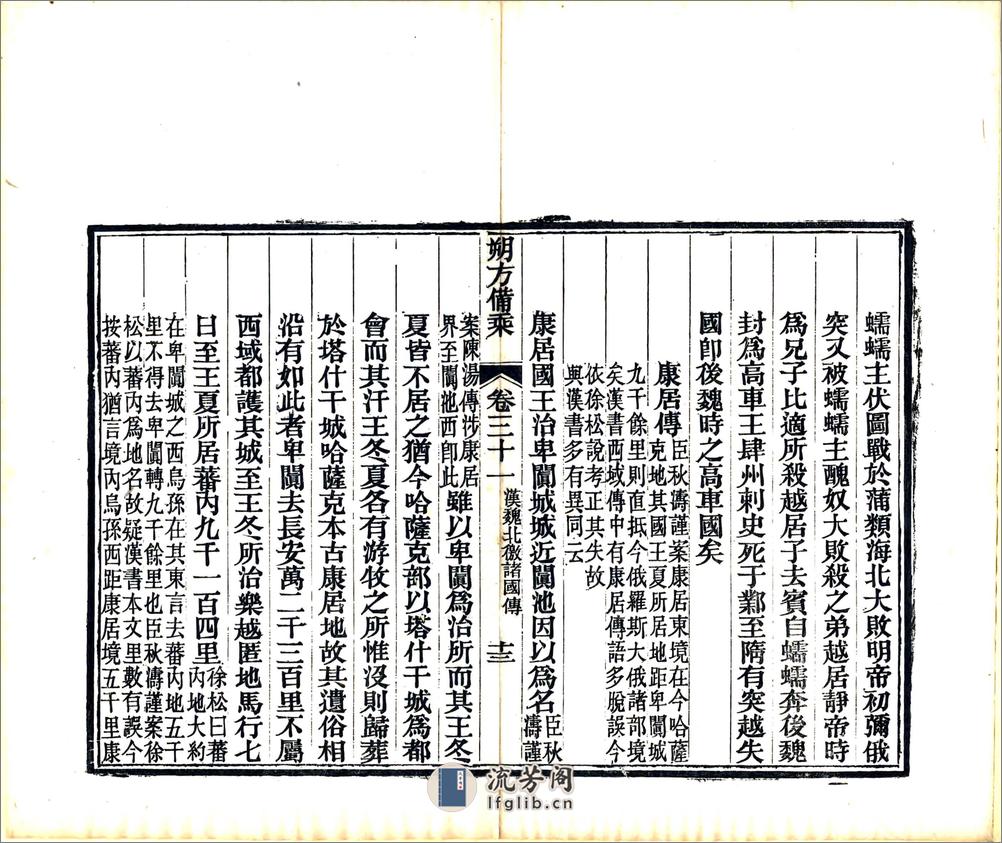 蠕蠕主伏圖戰於蒲類海北大敗明帝初彌俄
突又被蠕蠕主醜奴大敗殺之弟越居靜帝時
爲兄子比適所殺越居子去賓自蠕蠕奔後魏
封爲高車王肆州刺史死于鄴至隋有突越失
國卽後魏時之高車國矣
康居傳
臣秋濤謹案康居東境在今哈薩
克地其國王夏所居地距卑闐城
九千餘里則直抵今俄羅斯大俄諸部境
矣漢書西域傳中有康居傳語多脫誤今
依徐松說考正其失故
與漢書多有異同云
康居國王治卑闐城城近闐池因以爲名
臣秋
濤謹
朔方備乘
卷三十一
漢魏北徼諸國傳
十三
案陳湯傳涉康居
界至闐池西卽此
雖以卑闐爲治所而其王冬
夏皆不居之猶今哈薩克部以塔什干城爲都
會而其汗王冬夏各有游牧之所惟沒則歸葬
於塔什干城哈薩克本古康居地故其遺俗相
沿有如此者卑闐去長安萬二千三百里不屬
西域都護其城至王冬所治樂越匿地馬行七
日至王夏所居蕃內九千一百四里
徐松曰蕃
內地大約
在卑闐城之西烏孫在其東言去蕃內地五千
里不得去卑闐轉九千餘里也臣秋濤謹案徐
松以蕃內爲地名故疑漢書本文里數有誤今
按蕃內猶言境內烏孫西距康居境五千里康
流芳阁
lfglib.cn